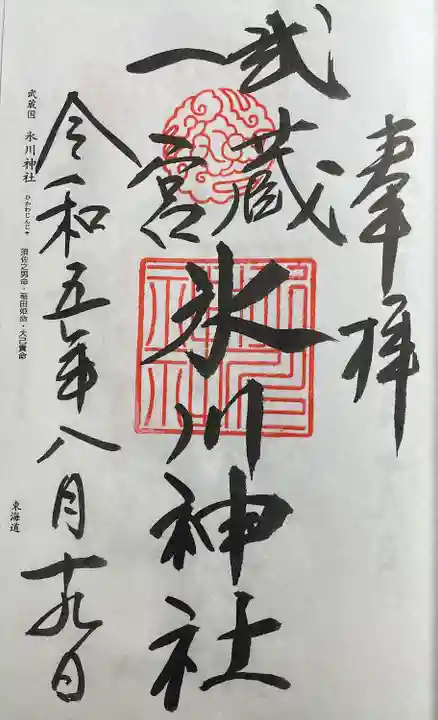 奉拝
武蔵
一宮
氷川神社
令和五年八月十九日
武蔵国 氷川神社 ひかわじんじゃ 須佐之男命・稲田姫命・大己貴命
東海道